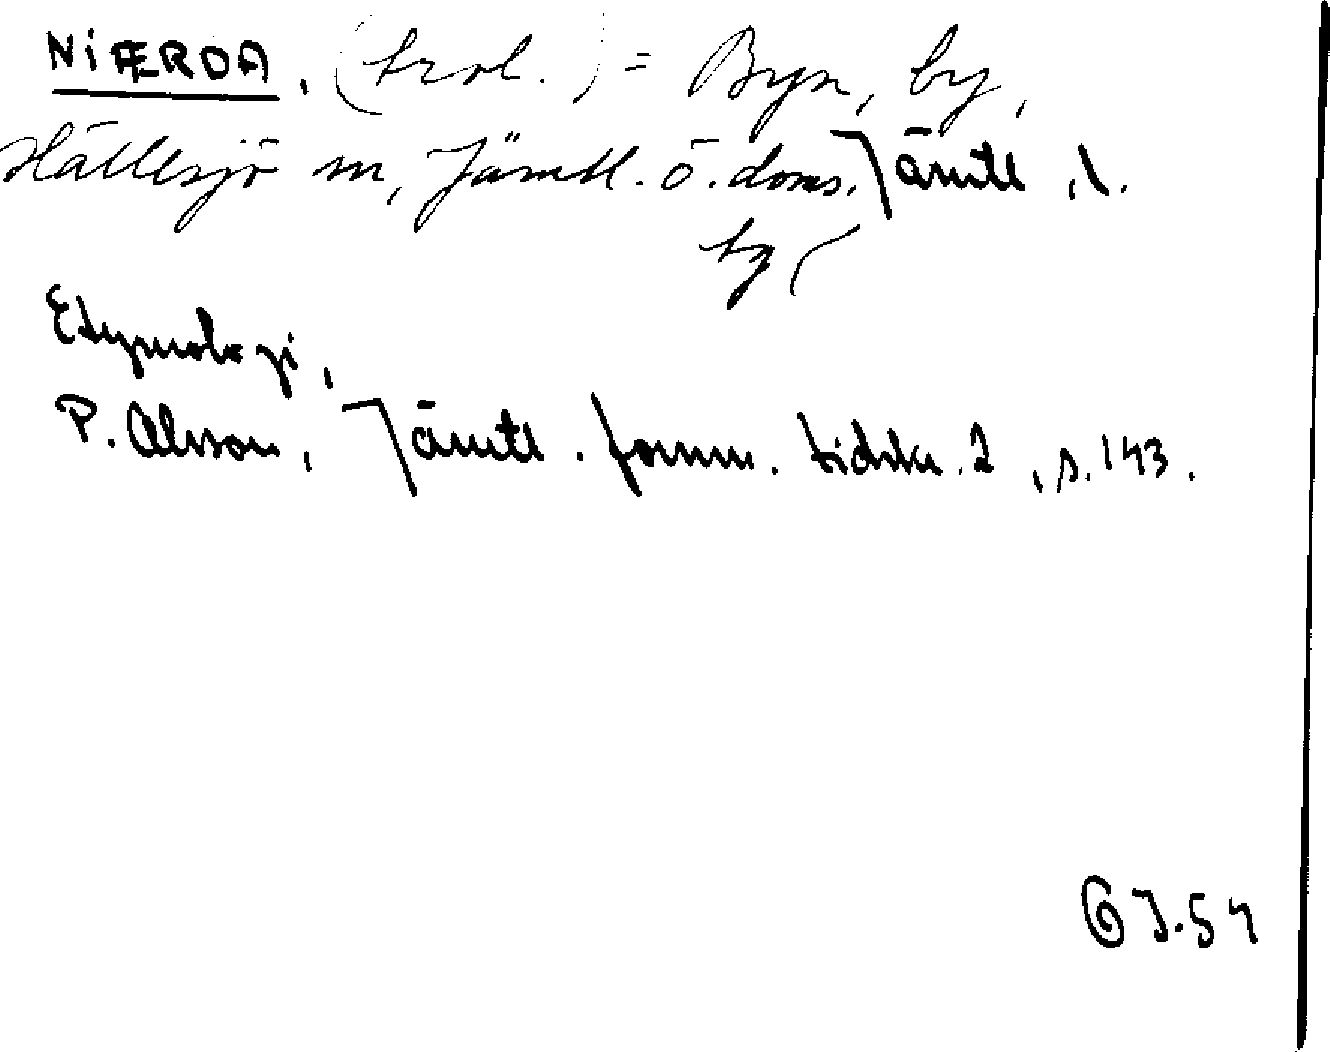 NIÆRDA, (trol.) = Byn, by,
Hällesjö sn, Jämtl. ö. doms. Jämtl. l.
Etymologi,
P. Olsson, Jämtl. fornm. tidskr. 2, s. 143.